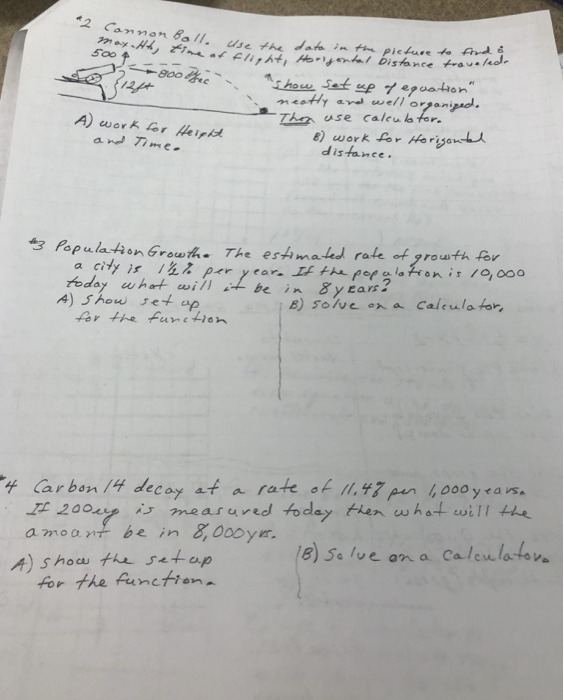 #2 Cannon Ball. Use the data in the picture to find:
max. Ht, time of flight, Horizontal Distance traveled.
500
800 ft/sec
12ft
"Show Set up of equation"
neatly and well organized.
Then use calculator.
A) work for Height
and Time.
B) work for Horizontal
distance.
#3 Population Growth. The estimated rate of growth for
a city is 1½% per year. If the population is 10,000
today what will it be in 8 years?
A) Show set up
for the function
B) Solve on a Calculator,
#4 Carbon 14 decay at a rate of 11.4% per 1,000 years.
If 200 is measured today then what will the
amount be in 8,000yrs.
A) show the set up
for the function.
B) Solve on a calculator.